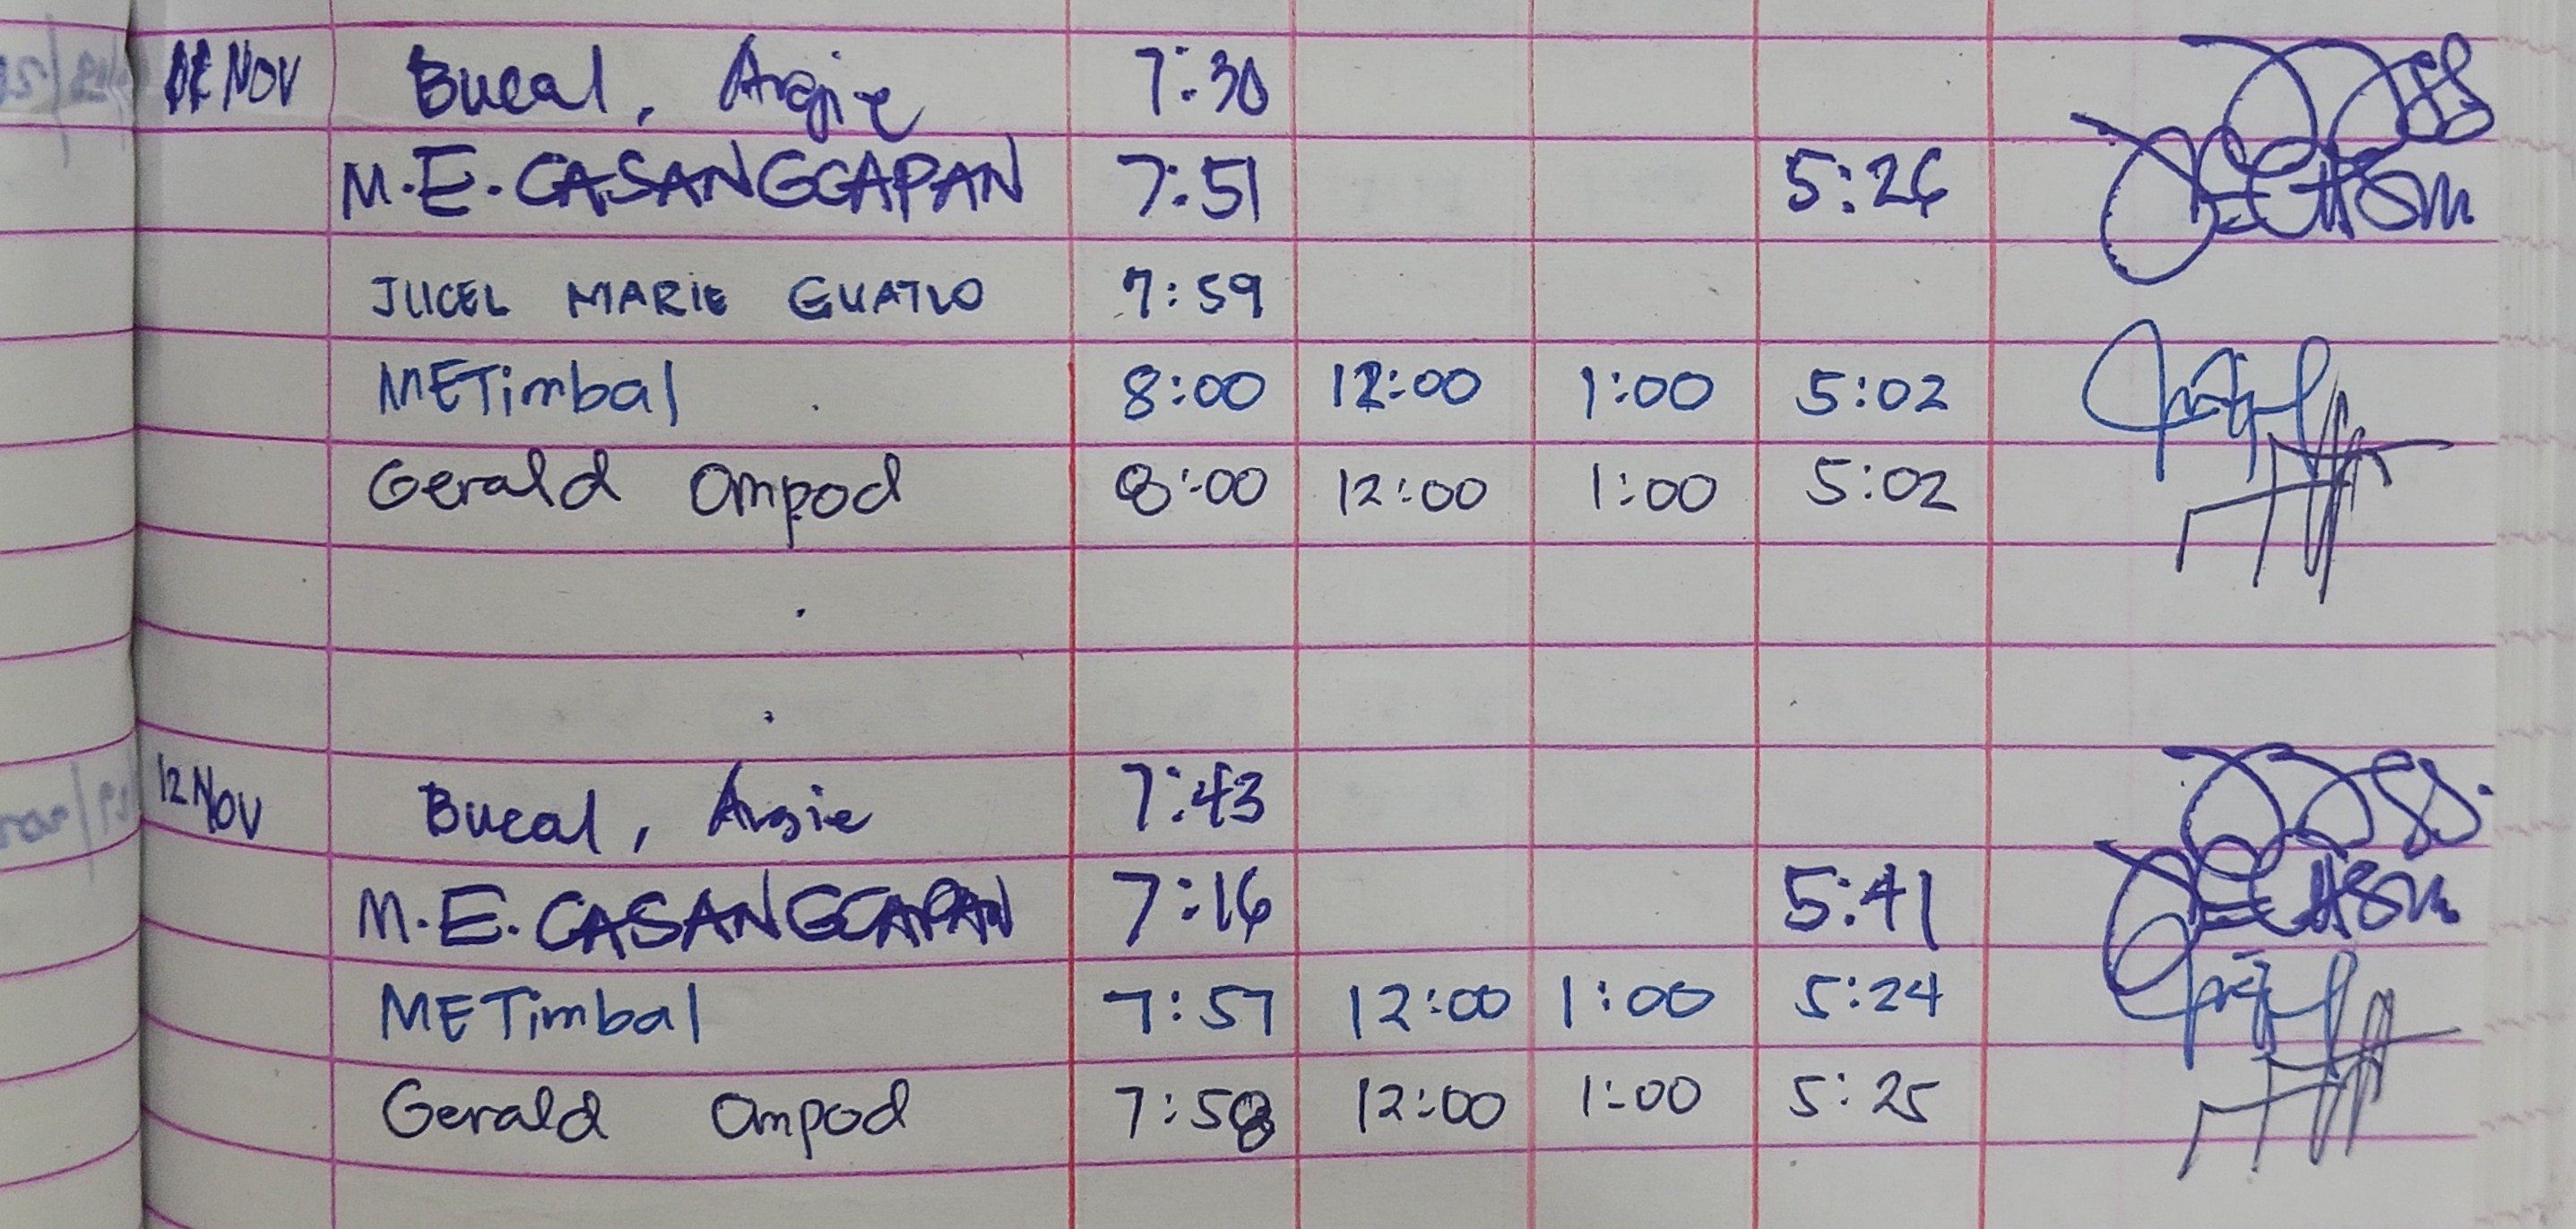 11 NOV Bucal, Argie 7:30
M.E. CASANGCAPAN 7:51 5:26
JUCEL MARIE GUATLO 7:59
METimbal 8:00 12:00 1:00 5:02
Gerald Ompod 8:00 12:00 1:00 5:02
12 NOV Bucal, Argie 7:43
M.E. CASANGCAPAN 7:16 5:41
METimbal 7:57 12:00 1:00 5:24
Gerald Ompod 7:58 12:00 1:00 5:25